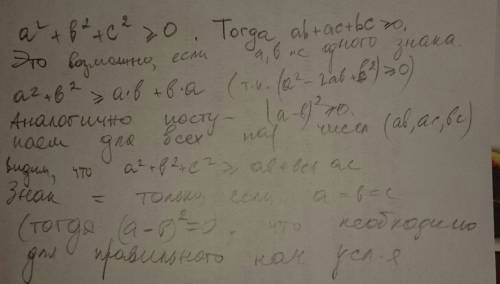 a² + b² + c² ⩾ 0. Тогда ab+ac+bc ⩾ 0.
Это возможно, если a, b и c одного знака.
a² + b² ⩾ a·b + b·a (т.к. (a² - 2ab + b²) ⩾ 0)
(a-b)² ⩾ 0.
Аналогично посту-
паем для всех пар чисел (ab, ac, bc)
видим, что a² + b² + c² ⩾ ab + bc + ac
Знак = только если a = b = c
(тогда (a-b)² = 0, что необходимо
для правильного нам усл-я